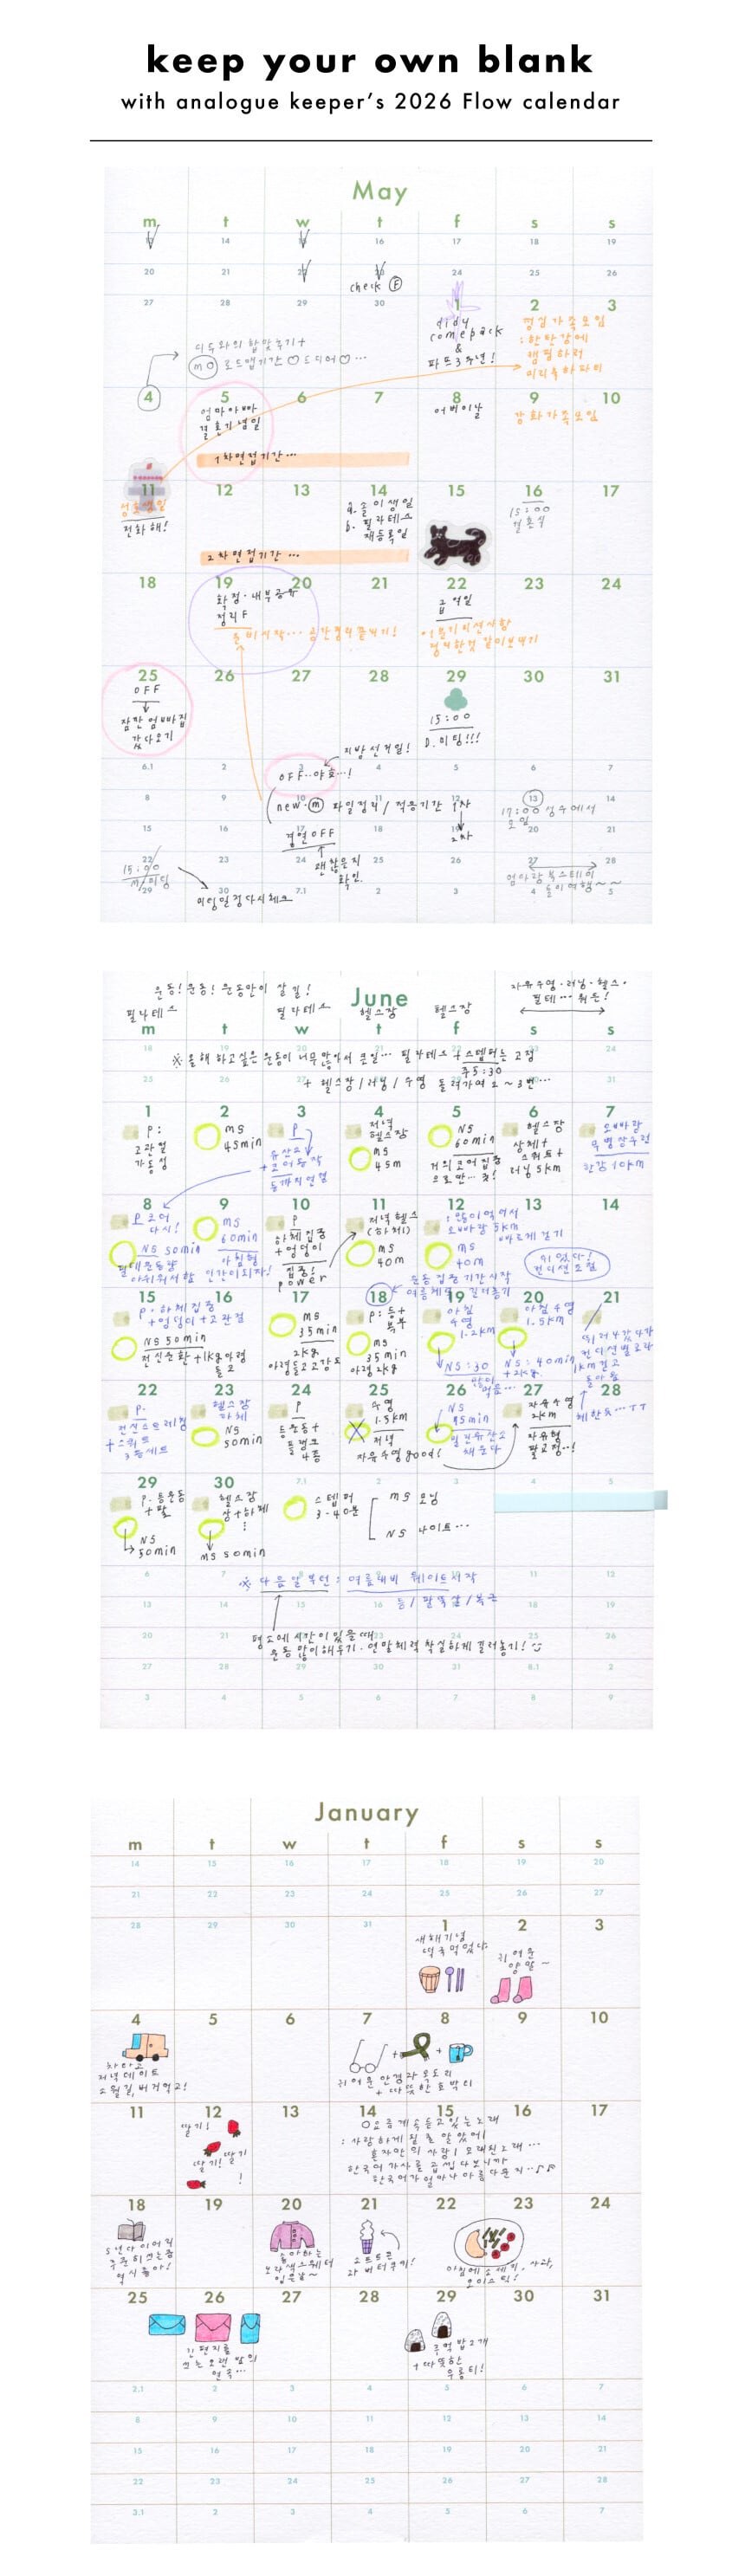 keep your own blank
with analogue keeper's 2026 Flow calendar
May
m t w t f s s
13 14 15 16 17 18 19
20 21 22 23 24 25 26
check F
27 28 29 30 1 2 3
didy
comeback
&
파드3주년!
점심가족모임
:한탄강에
캠핑하러
이리옥하파티
디두와의 합맞추기+
mo 로드맵기간♡드디어♡...
4 5 6 7 8 9 10
엄마아빠
결혼기념일
어버이날
강화가족모임
1차면접기간...
11 12 13 14 15 16 17
전화해!
a. 솔이생일
b. 필라테스
재등록일
15:00
결혼식
2차면접기간...
18 19 20 21 22 23 24
확정·내부공유
정리F
준비시작...
급여일
25 26 27 28 29 30 31
OFF
잠깐 엄빠집
갔다오기
15:00
D.미팅!!!
지방선거일!
6.1 2 3 4 5 6 7
OFF..야호..!
8 9 10 11 12 13 14
new m 파일정리/적응기간 1차
2차
17:00 성수에서
모임
15 16 17 18 19 20 21
겸연OFF
괜찮은지
확인.
22 23 24 25 26 27 28
15:00
m/미팅
엄마랑 북스테이
둘이여행~~
29 30 7.1 2 3 4 5
미팅일정다시체크
운동! 운동! 운동만이 살길!
June
자유수영·러닝·헬스·
필테... 뭐든!
필라테스 필라테스 헬스장 헬스장
m t w t f s s
18 19 20 21 22 23 24
※올해 하고싶은 운동이 너무많아서 큰일... 필라테스+스텝퍼는 고정
주5:30
25 26 27 31
+ 헬스장/러닝/수영 돌려가며 2~3번...
1 2 3 4 5 6 7
P:
고관절
가동성
MS
45min
P
유산소
+코어동작
동까지연결
저녁
헬스장
MS
45m
NS
60min
거의코어집중
으로만... 굿!
헬스장
상체+
스쿼트+
러닝5km
오빠랑
한강10km
8 9 10 11 12 13 14
P코어
다시!
NS 50min
아쉬워서함
MS
60min
아침형
인간이되자!
P
하체집중
+엉덩이
집중!
power
저녁헬스
(하체)
MS
40m
:많이먹어서
오빠랑 5km
빠르게걷기
MS
40m
쉬었다!
컨디션조절
운동집중기간시작
여름체력 길러놓기
15 16 17 18 19 20 21
P·하체집중
+엉덩이+고관절
NS 50min
전신순환+1kg아령
들고
MS
35min
2kg
아령들고고강도
P:등+
복부
MS
35min
아령2kg
아침
수영
1.2km
NS:30
많이
먹음...
아침수영
1.5km
NS:40min
+2kg
1km걷고
돌아옴
체한듯...ㅜㅜ
22 23 24 25 26 27 28
P.
전신스트레칭
+스쿼트
3종세트
헬스장
하체
NS
50min
P
등운동+
플랭크
4종
수영
1.5km
저녁
자유수영good!
NS
45min
밀린유산소
채운다
자유수영
2km
자유형
팔교정..!
29 30 7.1 2 3 4 5
P·등운동
+팔
NS
50min
헬스장
상+하체
MS 50min
스텝퍼
3-40분
MS 모닝
NS 나이트...
6 7 8 9 10 11 12
※다음달부턴: 여름대비 웨이트시작
13 14 15 16 17 18 19
등/팔뚝살/복근
20 21 22 23 24 25 26
평소에시간이있을때
운동 많이해두기·연말체력 착실하게 길러놓기!
27 28 29 30 31 8.1 2
3 4 5 6 7 8 9
January
m t w t f s s
14 15 16 17 18 19 20
21 22 23 24 25 26 27
28 29 30 31 1 2 3
새해기념
떡국먹었다
귀여운
양말~
4 5 6 7 8 9 10
차타고
저녁데이트
소월길, 버거먹고!
+ +
귀여운 안경과 목도리
+ 따뜻한 호박티
11 12 13 14 15 16 17
딸기!
딸기!
딸기
!
요즘계속듣고있는노래
:사랑하게 될 줄 알았어|
혼자만의 사랑| 오래된노래...
한국어가사를 곱씹다보니까
한국어가 얼마나 아름다운지..♪♪
18 19 20 21 22 23 24
5년다이어리
꾸준히쓰는중
역시 좋아!
좋아하는
보라색스웨터
입은날~
소프트콘
과 버터쿠키!
아침에소세지, 사과,
오이소박!
25 26 27 28 29 30 31
긴편지를
쓰는 오랜 밤의
연속...
주먹밥2개
+따뜻한
우롱티!
2.1 2 3 4 5 6 7
8 9 10 11 12 13 14
15 16 17 18 19 20 21
22 23 24 25 26 27 28
3.1 2 3 4 5 6 7